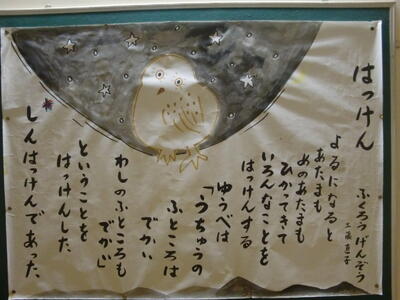 はっけん
ふくろう げんぞう
工藤直子
よるになると
あたまも
めのあたまも
ひかってきて
いろんなことを
はっけんする
ゆうべは
「うちゅうの
ふところは
でかい
わしのふところも
でかい」
ということを
はっけんした
しんはっけんであった。